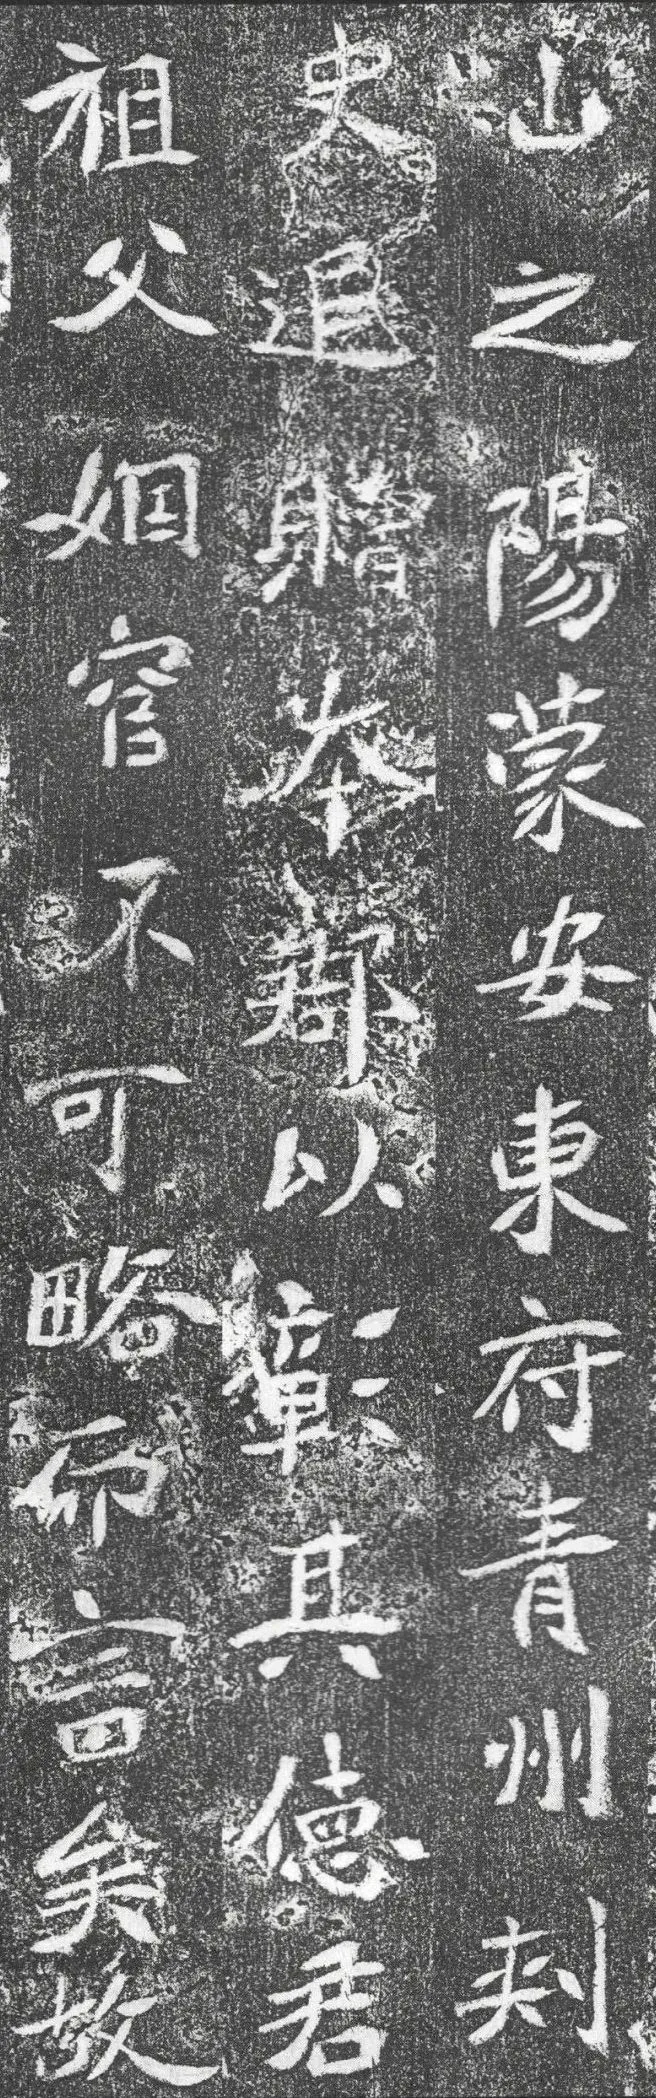 山之陽蒙安東府青州刺
史退贈本鄉以彰其德君
祖父姻官不可略而言矣故